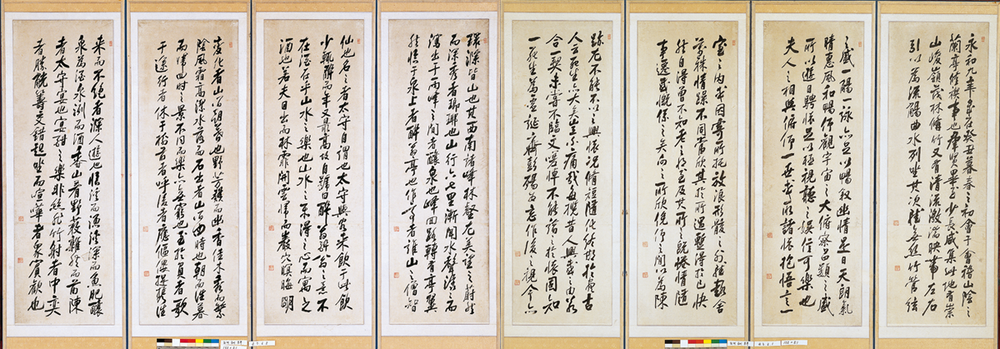 永和九年歲在癸丑暮春之初會于會稽山陰之
蘭亭脩禊事也群賢畢至少長咸集此地有崇
山峻嶺茂林脩竹又有清流激湍映帶左右
引以為流觴曲水列坐其次雖無絲竹管絃
之盛一觴一詠亦足以暢敘幽情是日天朗氣
晴惠風和暢仰觀宇宙之大俯察品類之盛
所以遊目騁懷足以極視聽之娛信可樂也
夫人之相與俯仰一世或取諸懷抱悟言一
室之內或因寄所托放浪形骸之外雖趣舍
萬殊情躁不同當欣其於所遇蹔得於己快
然自得曾不知老之將至及其所之既惓情隨
事遷感慨係之矣向之所欣俛仰之間以為陳
跡尤不能不以之興懷況脩短隨化終期於盡古
人云死生亦大矣豈不痛哉每攬昔人興感之由若
合一契未嘗不臨文嗟悼不能喻之於懷固知
一死生為虛誕齊彭殤為妄作後之視今亦
環滁皆山也其西南諸峰林壑尤美望之蔚然
而深秀者瑯琊也山行六七里漸聞水聲潺潺而
瀉出于兩峰之間者釀泉也峰回路轉有亭翼
然臨于泉上者醉翁亭也作亭者誰山之僧智
仙也名之者太守自謂也太守與客來飲于此飲
少輒醉而年又最高故自號曰醉翁醉翁之意不
在酒在乎山水之間也山水之樂得之心而寓之
酒也若夫日出而林霏開雲歸而巖穴暝晦明
變化者山間之朝暮也野芳發而幽香佳木秀而繁
陰風霜高潔水落而石出者山間之四時也朝而往暮
而歸四時之景不同而樂亦無窮也至於負者歌
于途行者休于樹前者呼後者應傴僂提攜往
來而不絕者滁人遊也臨溪而漁溪深而魚肥釀
泉為酒泉洌而酒香山肴野蔌雜然而前陳
者太守宴也宴酣之樂非絲非竹射者中奕
者勝觥籌交錯起坐而諠譁者衆賓歡也